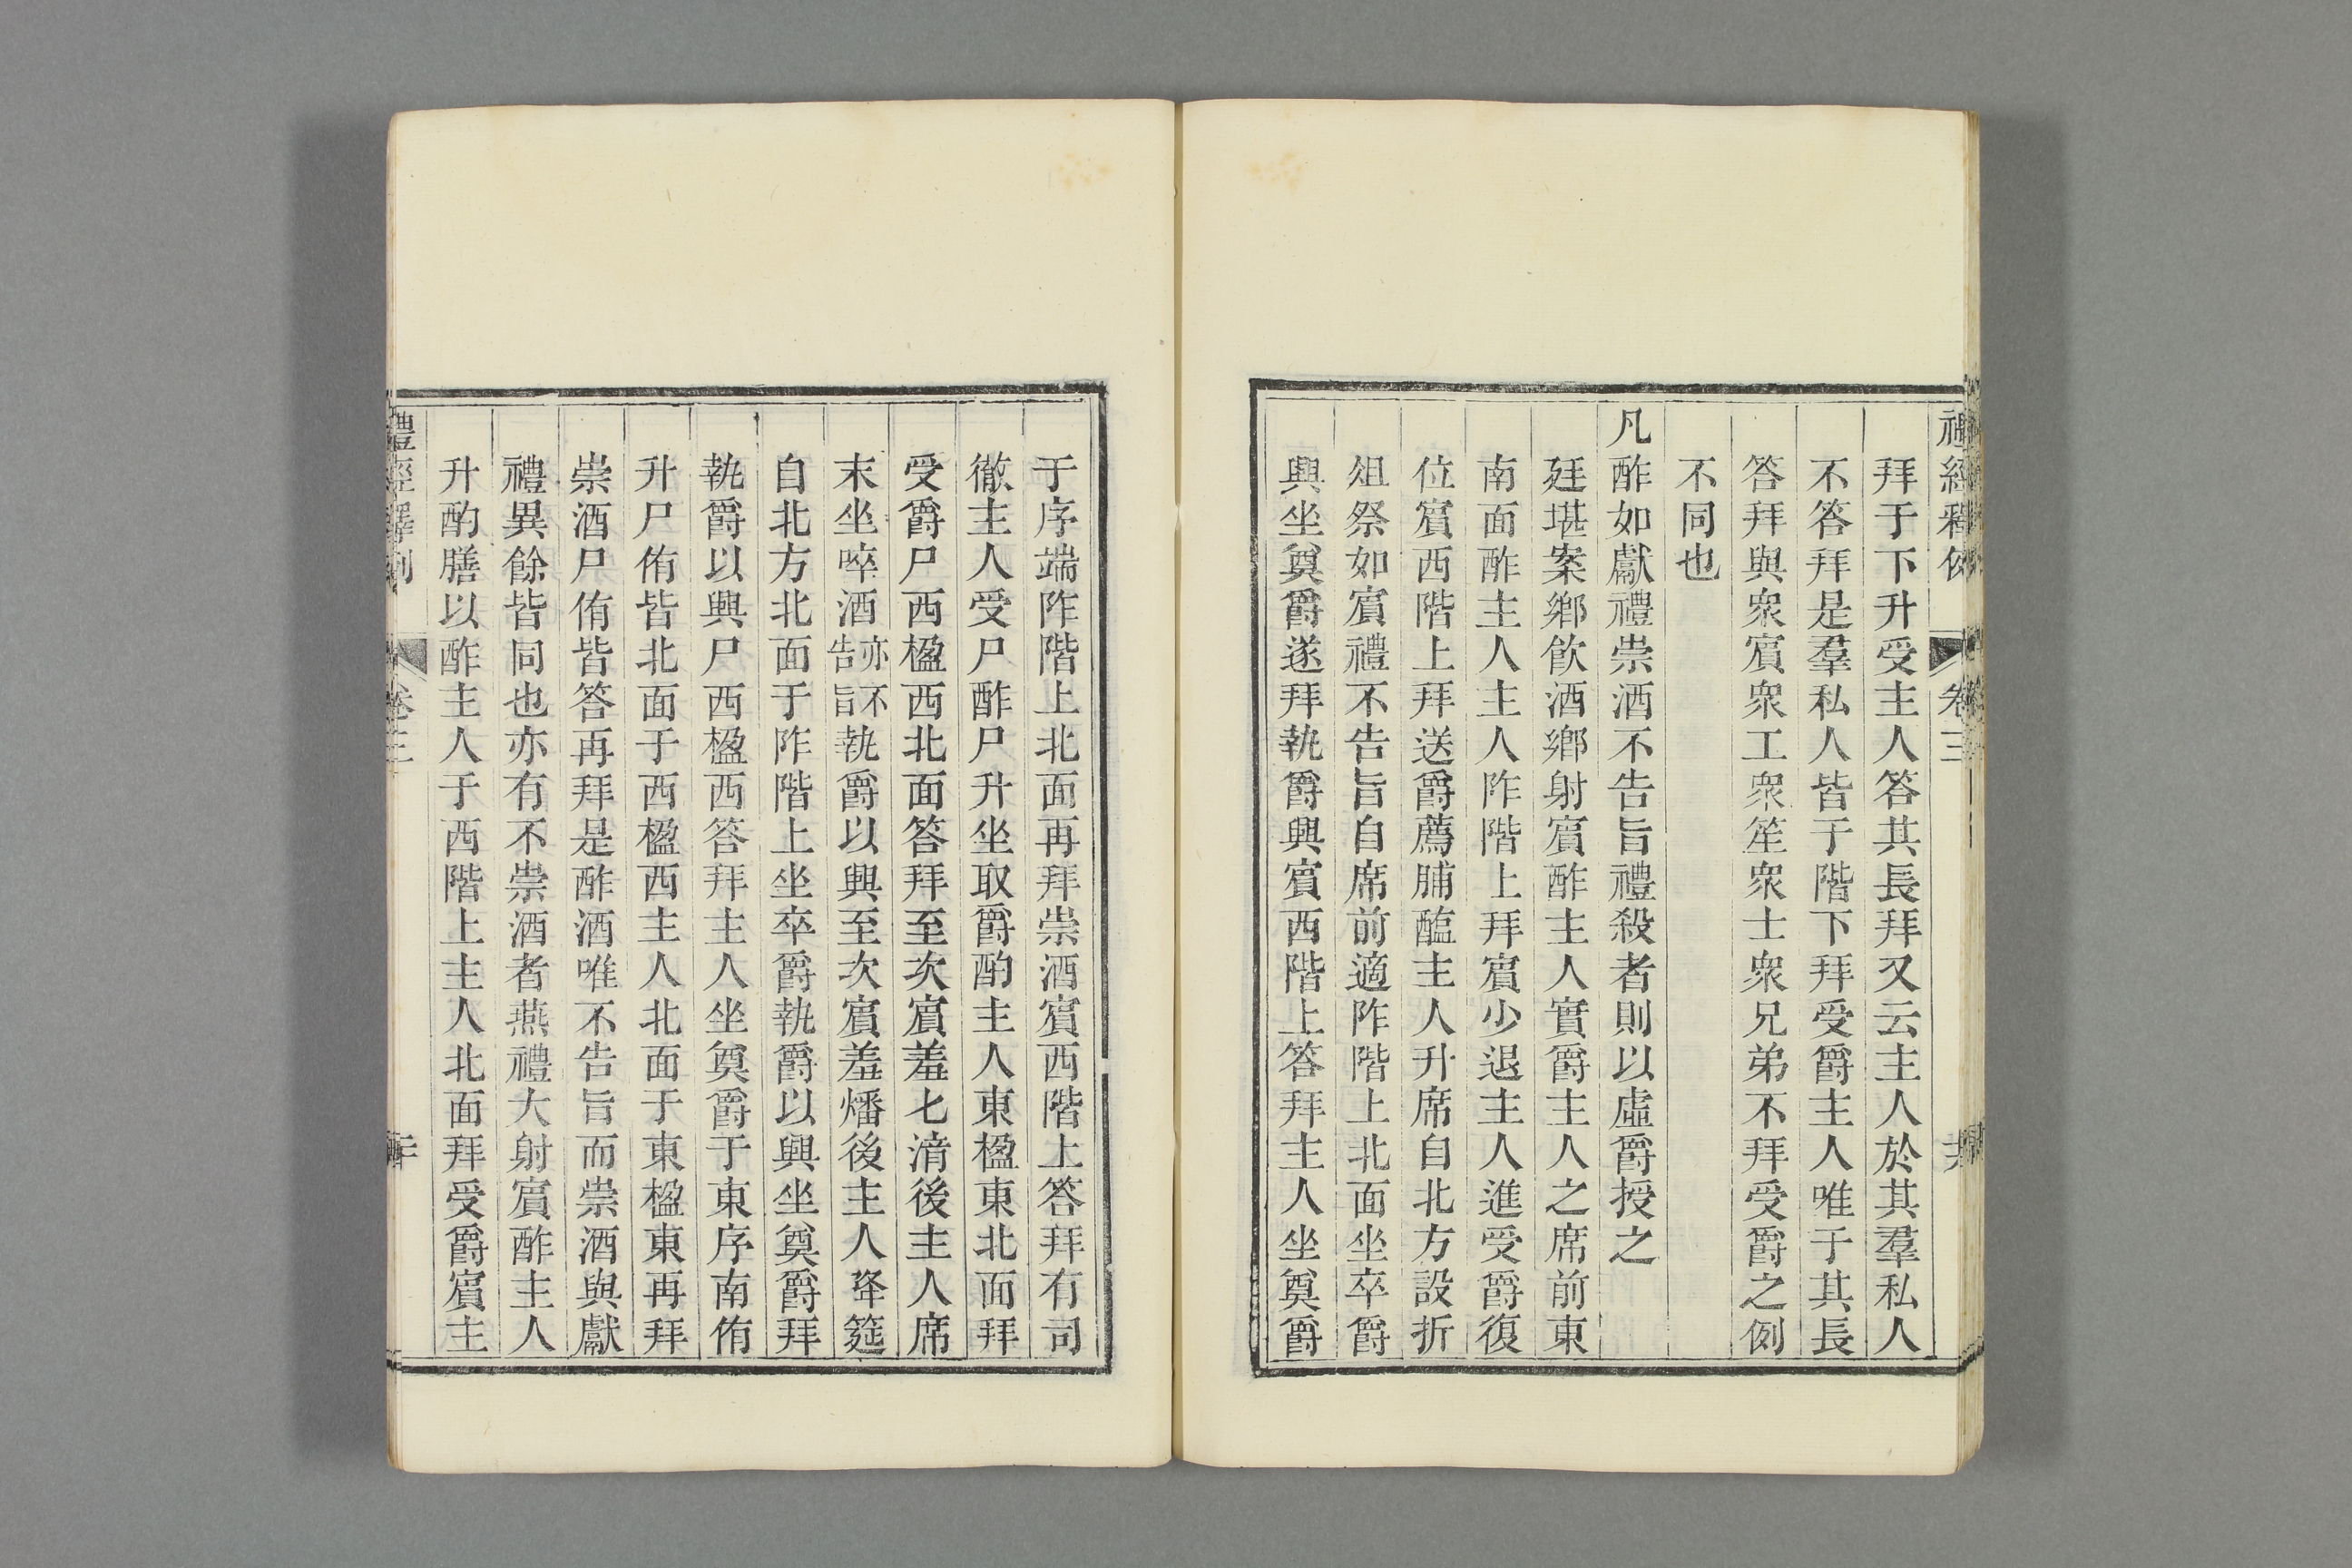 拜于下升受主人答其長拜又云主人於其羣私人
不答拜是羣私人皆于階下拜受爵主人唯于其長
答拜與衆賓衆工衆笙衆士衆兄弟不拜受爵之例
不同也
凡酢如獻禮崇酒不告旨禮殺者則以虛爵授之
廷堪案鄉飲酒鄉射賓酢主人實爵主人之席前東
南面酢主人主人阼階上拜賓少退主人進受爵復
位賓西階上拜送爵薦脯醢主人升席自北方設折
俎祭如賓禮不告旨自席前適阼階上北面坐卒爵
興坐奠爵遂拜執爵興賓西階上答拜主人坐奠爵
于序端阼階上北面再拜崇酒賓西階上答拜有司
徹主人受尸酢尸升坐取爵酌主人東楹東北面拜
受爵尸西楹西北面答拜至次賓羞匕湆後主人席
末坐啐酒亦不告旨執爵以興至次賓羞燔後主人降筵
自北方北面于阼階上坐卒爵執爵以興坐奠爵拜
執爵以興尸西楹西答拜主人坐奠爵于東序南侑
升尸侑皆北面于西楹西主人北面于東楹東再拜
崇酒尸侑皆答再拜是酢酒唯不告旨而崇酒與獻
禮異餘皆同也亦有不崇酒者燕禮大射賓酢主人
升酌膳以酢主人于西階上主人北面拜受爵賓主
禮經釋例 卷三